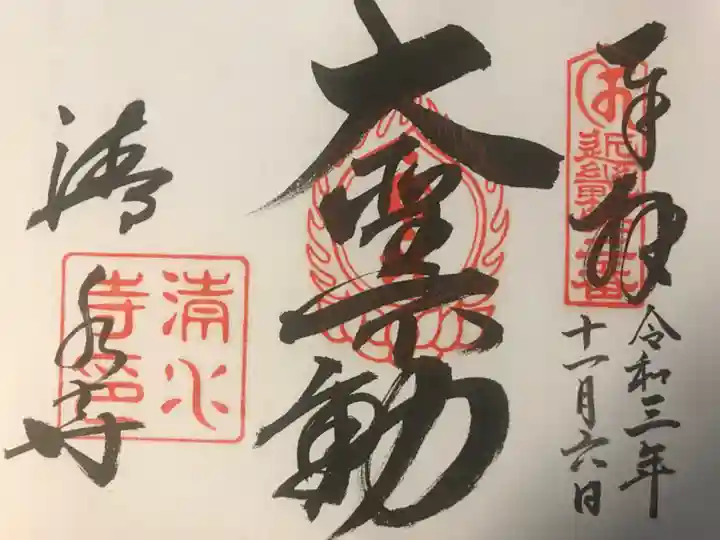 奉拝
令和三年
十一月六日
大聖不動
清水寺
清水